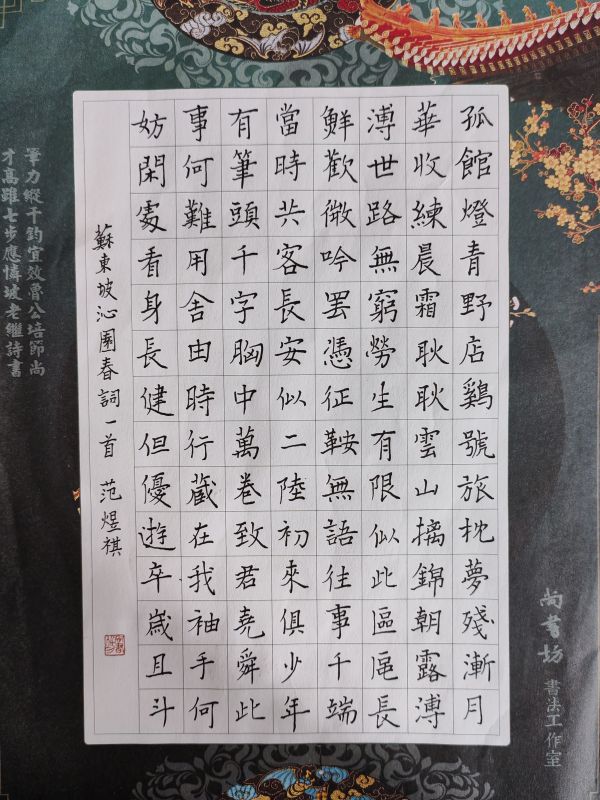 孤館燈青野店鷄號旅枕夢殘漸月
華收練晨霜耿耿雲山摛錦朝露漙
漙世路無窮勞生有限似此區區長
鮮歡微吟罷憑征鞍無語往事千端
當時共客長安似二陸初來俱少年
有筆頭千字胸中萬卷致君堯舜此
事何難用舍由時行藏在我袖手何
妨閑處看身長健但優遊卒歲且斗
蘇東坡沁園春詞一首 范煜祺
筆力縱千鈞宜效魯公培節尚
才高雖七步應憐坡老繼詩書
尚書坊 書法工作室